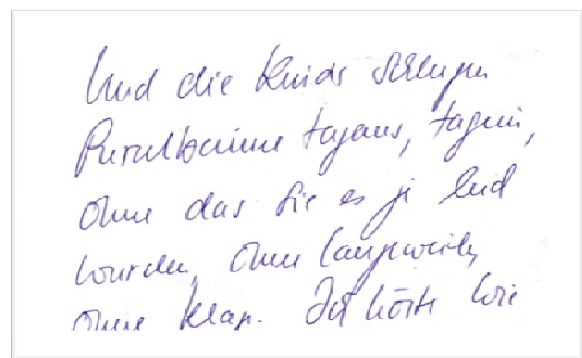 Und die Kinder schlugen
Purzelbäume tagaus, tagein,
ohne das sie es je leid
wurden, ohne Langweile,
ohne Klage. Ich hörte wie